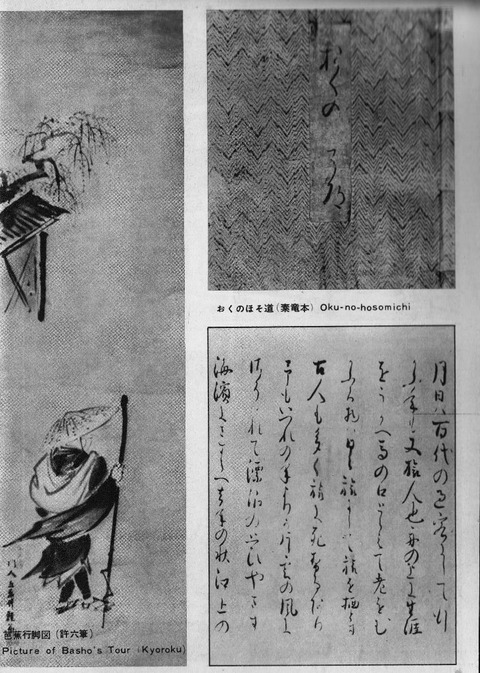 おくのほそ道
おくのほそ道(素竜本) Oku-no-hosomichi
月日は百代の過客にして行
かふ年も又旅人也舟の上に生涯
をうかへ馬の口とらえて老をむ
かふる物は日々旅にして旅を栖とす
古人も多く旅に死せるあり
予もいつれの年よりか片雲の風に
さそはれて漂泊の思ひやます
海濱にさすらへ去年の秋江上の
芭蕉行脚図(許六筆)
Picture of Basho's Tour (Kyoroku)